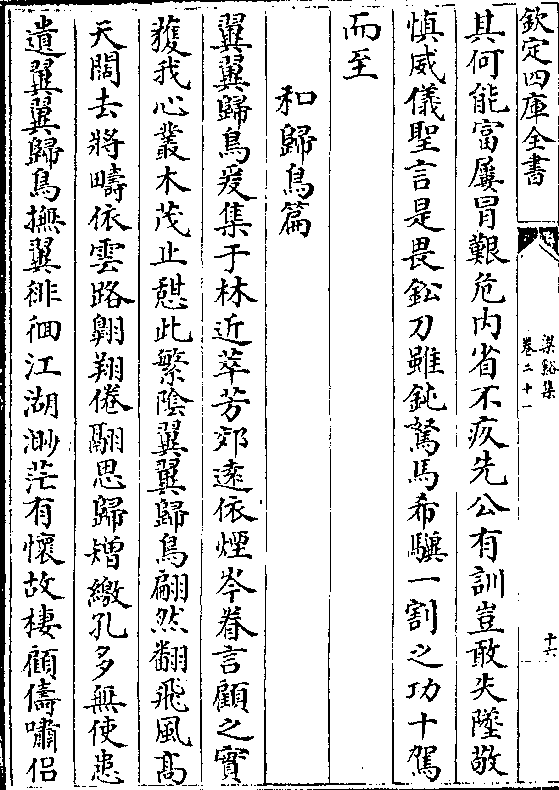 欽定四庫全書
梁谿集
卷二十一
十六
其何能富屢冒艱危内省不疚先公有訓豈敢失墜敬
慎威儀聖言是畏鈆刀雖鈍駑馬希驥一割之功十駕
而至
和歸鳥篇
翼翼歸鳥爰集于林近萃芳郊遠依煙岑眷言顧之實
獲我心叢木茂止憇此繁陰翼翼歸鳥翩然翻飛風高
天闊去將疇依雲路翺翔倦翮思歸矰繳孔多無使患
遺翼翼歸鳥撫翼徘徊江湖渺茫有懷故棲顧儔嘯侶